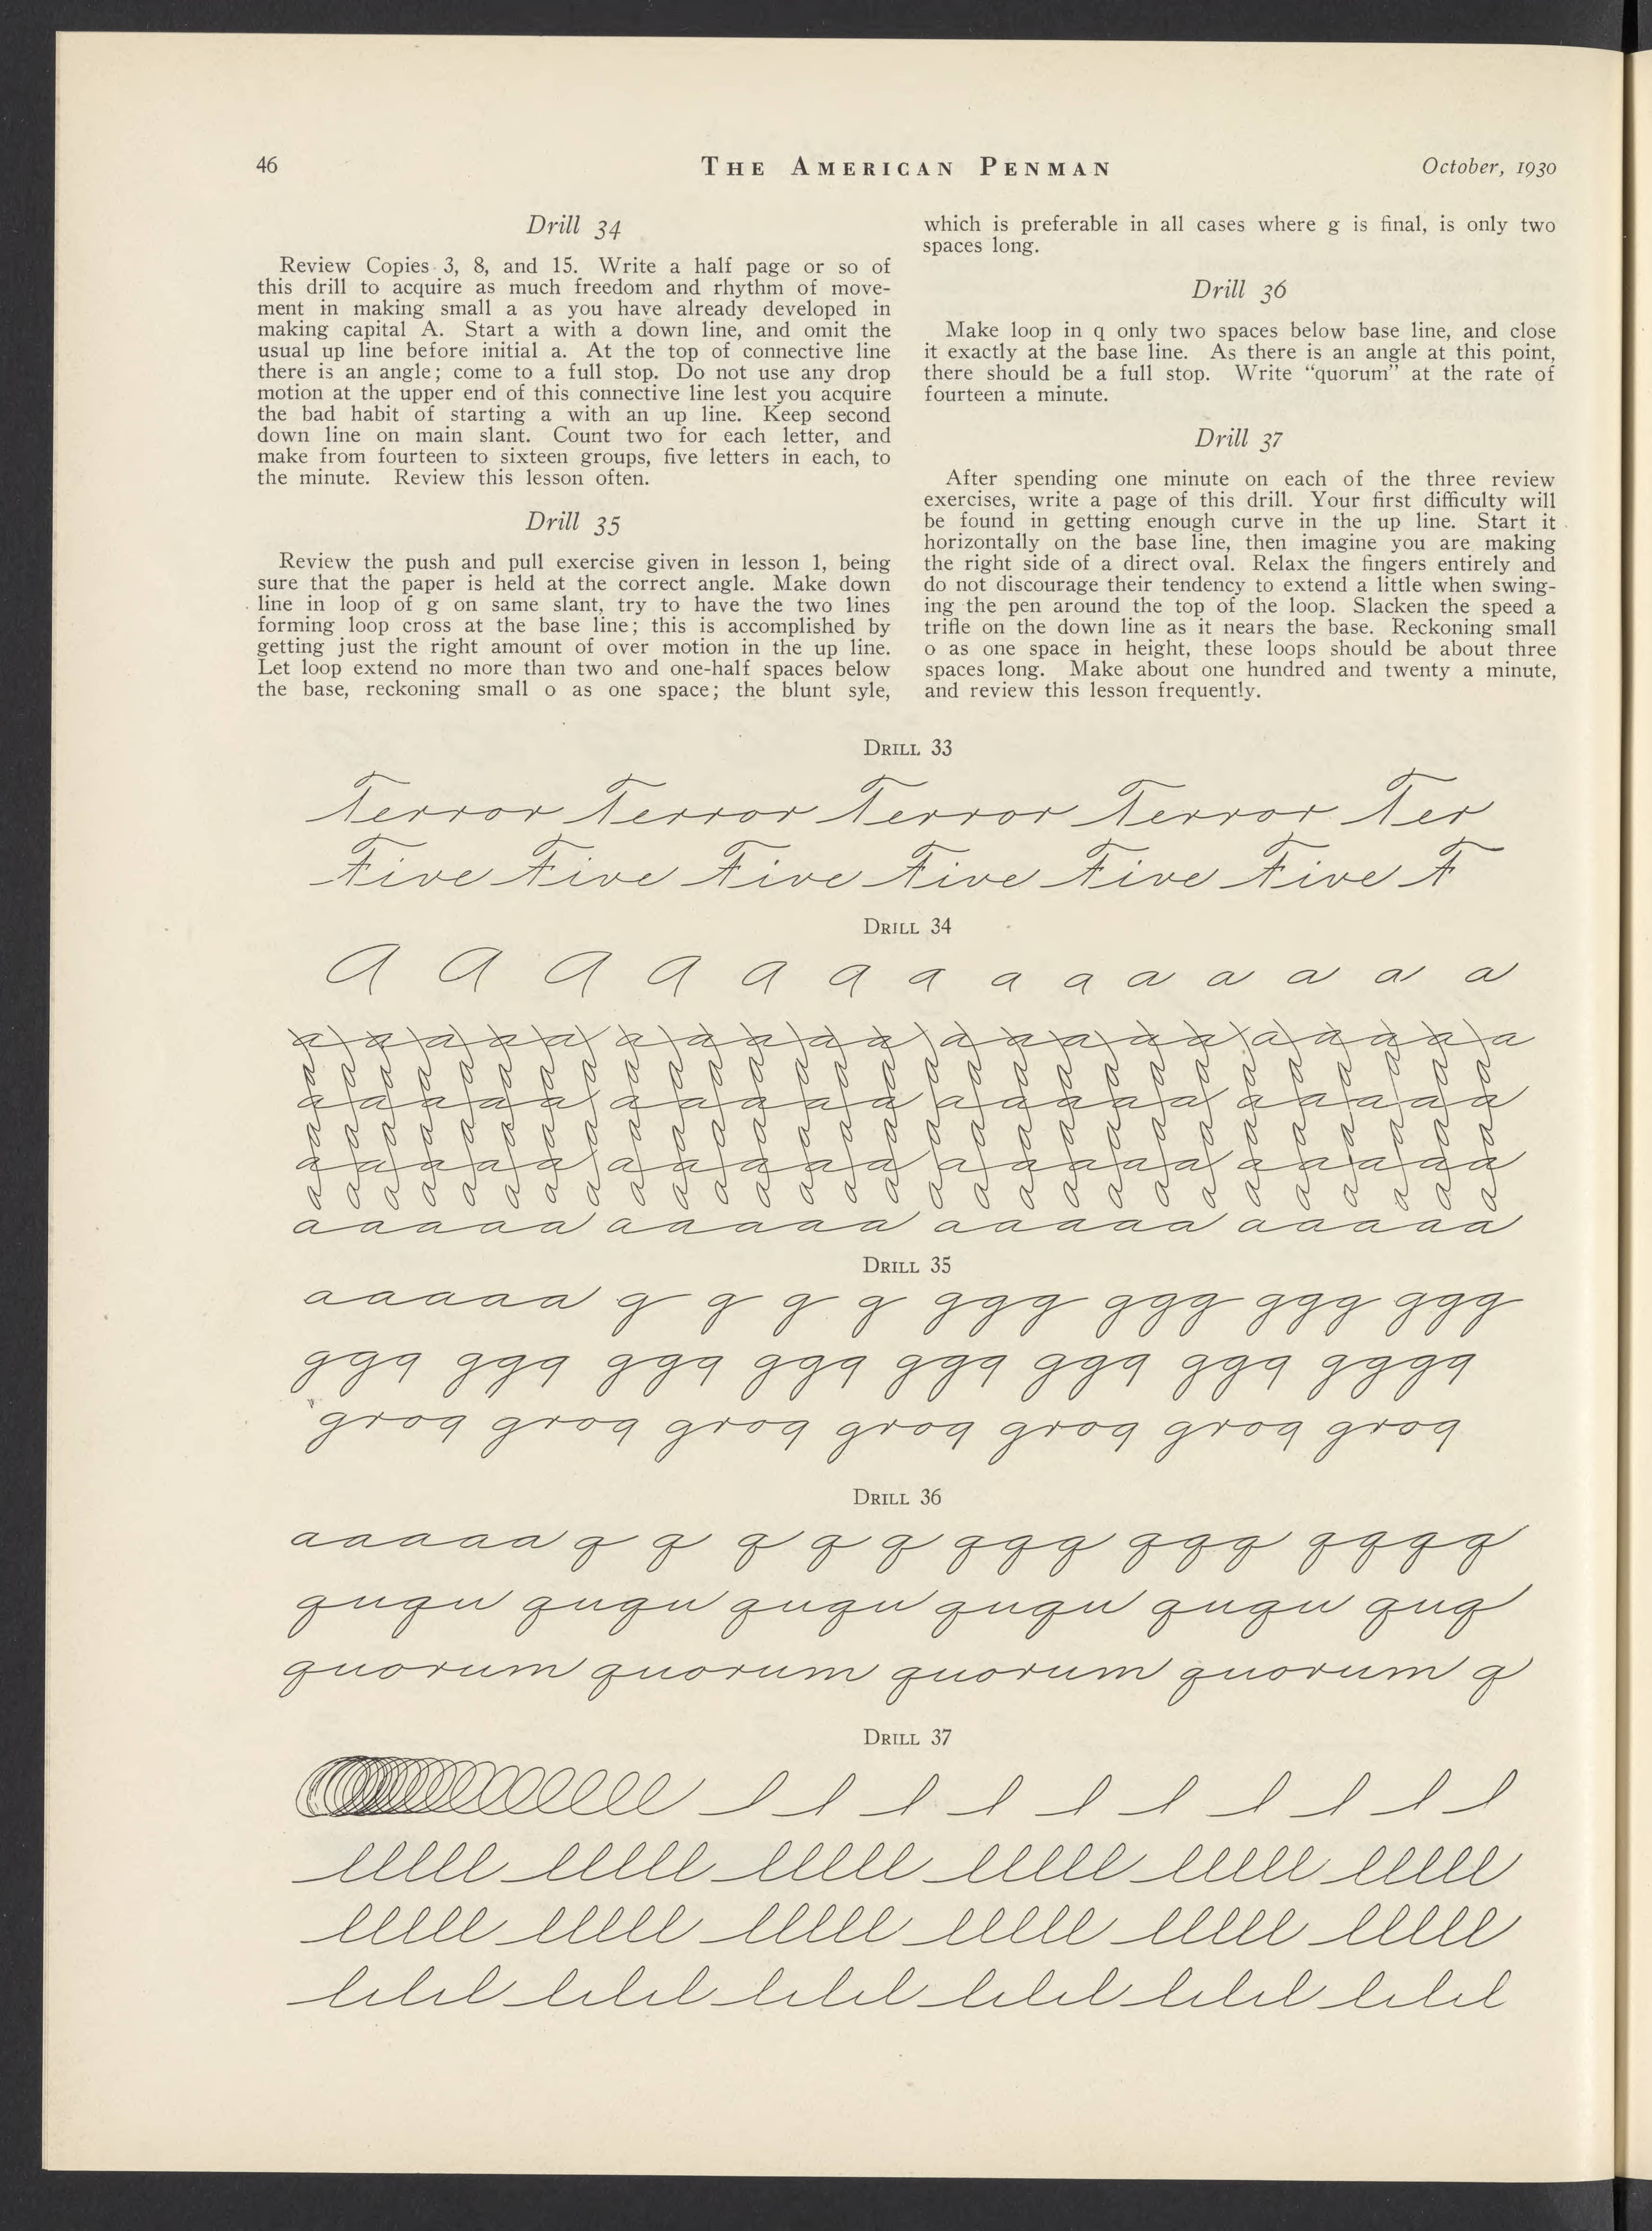 46
THE AMERICAN PENMAN
October, 1930
Drill 34
Review Copies 3, 8, and 15. Write a half page or so of
this drill to acquire as much freedom and rhythm of move-
ment in making small a as you have already developed in
making capital A. Start a with a down line, and omit the
usual up line before initial a. At the top of connective line
there is an angle; come to a full stop. Do not use any drop
motion at the upper end of this connective line lest you acquire
the bad habit of starting a with an up line. Keep second
down line on main slant. Count two for each letter, and
make from fourteen to sixteen groups, five letters in each, to
the minute. Review this lesson often.
Drill 35
Review the push and pull exercise given in lesson 1, being
sure that the paper is held at the correct angle. Make down
line in loop of g on same slant, try to have the two lines
forming loop cross at the base line; this is accomplished by
getting just the right amount of over motion in the up line.
Let loop extend no more than two and one-half spaces below
the base, reckoning small o as one space; the blunt syle,
which is preferable in all cases where g is final, is only two
spaces long.
Drill 36
Make loop in q only two spaces below base line, and close
it exactly at the base line. As there is an angle at this point,
there should be a full stop. Write "quorum" at the rate of
fourteen a minute.
Drill 37
After spending one minute on each of the three review
exercises, write a page of this drill. Your first difficulty will
be found in getting enough curve in the up line. Start it
horizontally on the base line, then imagine you are making
the right side of a direct oval. Relax the fingers entirely and
do not discourage their tendency to extend a little when swing-
ing the pen around the top of the loop. Slacken the speed a
trifle on the down line as it nears the base. Reckoning small
o as one space in height, these loops should be about three
spaces long. Make about one hundred and twenty a minute,
and review this lesson frequently.
DRILL 33
Terror Terror Terror Terror Ter
Five Five Five Five Five Five F
DRILL 34
a a a a a a a a a a a a a a
aaaaa aaaaa aaaaa aaaaa
DRILL 35
aaaaa g g g g ggg ggg ggg ggg
ggg ggg ggg ggg ggg ggg ggg gggg
grog grog grog grog grog grog grog
DRILL 36
aaaaa q q q q q qqq qqq qqqq
ququ ququ ququ ququ ququ quq
quorum quorum quorum quorum q
DRILL 37
l l l l l l l l l l
lllll lllll lllll lllll lllll lllll
lllll lllll lllll lllll lllll lllll
lilil lilil lilil lilil lilil lilil